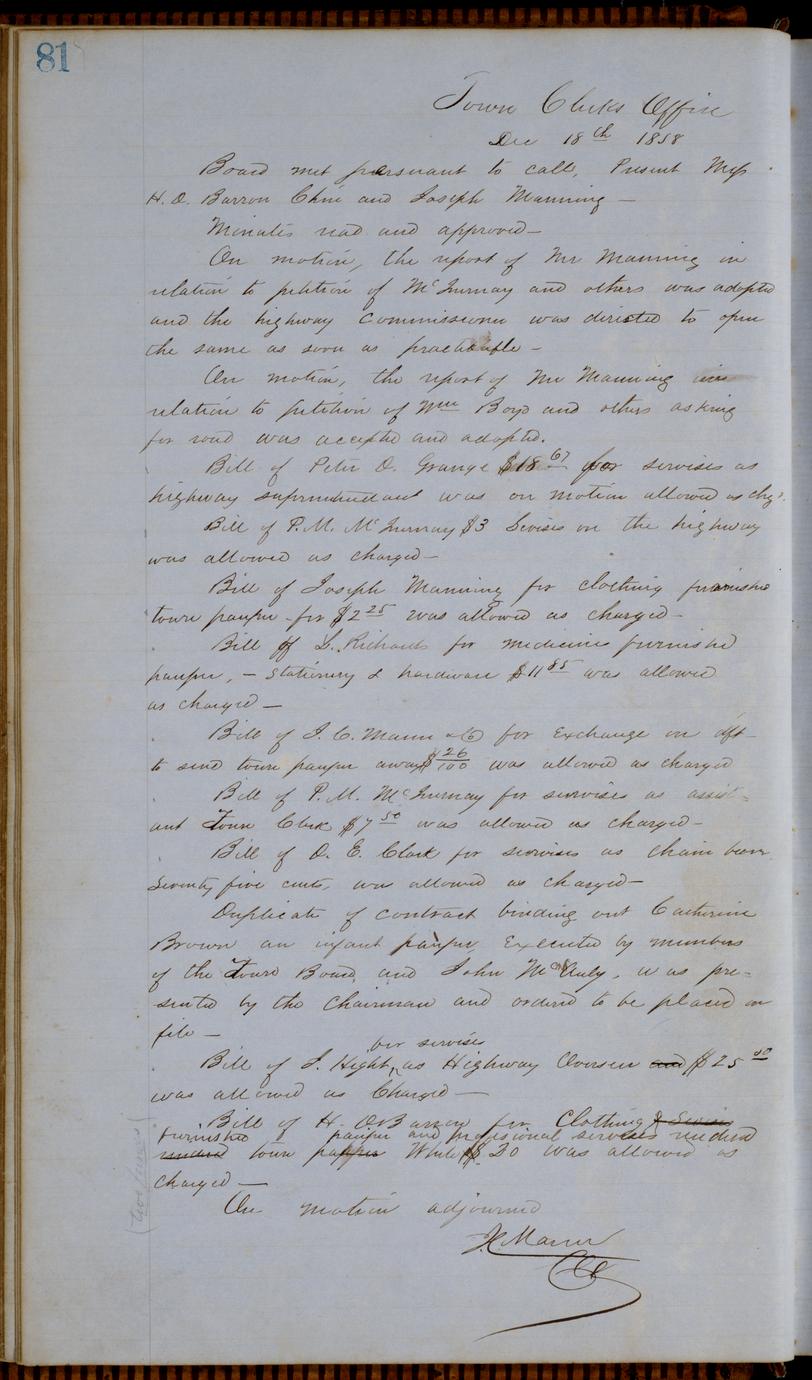 81
Town Clerks Office
Dec 18th 1858
Board met pursuant to call, Present Mess
H. O. Barron Chm and Joseph Manning —
Minutes read and approved —
On motion, the report of Mr Manning in
relation to petition of McGurnay and others was adopted
and the highway Commissioner was directed to open
the same as soon as practicable —
On motion, the report of Mr Manning in
relation to petition of Wm Boyd and others asking
for road was accepted and adopted.
Bill of Peter O. Grange $18 67 for servises as
highway suprintendant was on motion allowed as chgd.
Bill of P. M. McGurnay $3 Servises on the highway
was allowed as charged —
Bill of Joseph Manning for clothing furnishd
town pauper for $2 25 was allowed as charged —
Bill of L. Richards for medicine furnishd
pauper, — Stationery & hardware $11 85 was allowed
as charged —
Bill of J. C. Mann & Co for Exchange on dft
to send town pauper away $ 26/100 was allowed as charged
Bill of P. M. McGurnay for servises as assist=
ant Town Clerk $7 50 was allowed as charged —
Bill of D. E. Clark for servises as chain bearer
Seventy five cents, was allowed as charged —
Duplicate of contract binding out Catherine
Brown an infant pauper Executed by members
of the Town Board, and John McAuly, was pre=
sented by the Chairman and ordered to be placed on
file —
for servises
Bill of J. Hight, as Highway Overseer and $25 00
was allowed as Charged —
Bill of H. O Barron for Clothing & Servises
furnished pauper and profesional servises rendered
rendered town pauper White $ 20 was allowed as
charged —
On motion adjourned
Mann
Clk